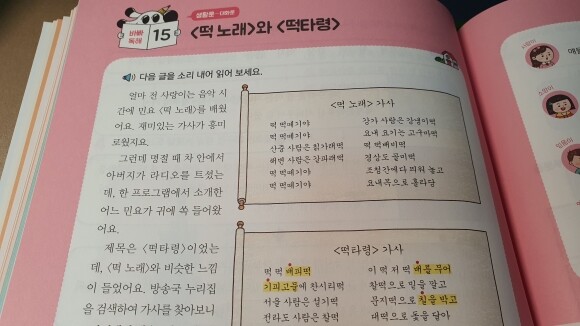 생활문 - 대화문
바빠
독해
15
<떡 노래>와 <떡타령>
다음 글을 소리 내어 읽어 보세요.
얼마 전 사랑이는 음악 시
간에 민요 <떡 노래>를 배웠
어요. 재미있는 가사가 흥미
로웠지요.
그런데 명절 때 차 안에서
아버지가 라디오를 트셨는
데, 한 프로그램에서 소개한
어느 민요가 귀에 쏙 들어왔
어요.
제목은 <떡타령>이었는
데, <떡 노래>와 비슷한 느낌
이 들었어요. 방송국 누리집
을 검색하여 가사를 찾아보니
<떡 노래> 가사
떡 떡떼기야
떡 떡떼기야
산중 사람은 칡가래떡
해변 사람은 갈파래떡
떡 떡떼기야
떡 떡떼기야
강가 사람은
요내 요기는
떡 떡배미떡
정상도
조청간에다 띄워 놓고
요내목으로 홀라당
<떡타령> 가사
떡 떡 배피떡
기피고물에 찬시리떡
서울 사람은 설기떡
전라도 사람은 찰떡
이 떡 저 떡 배를 무어
찰떡으로 밑을 깔고
문지떡으로 칠을 박고
대떡으로 돛을 달아